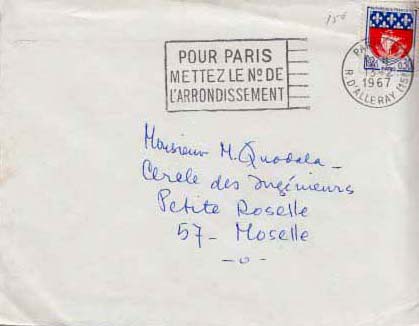 150
POUR PARIS
METTEZ LE No DE
L'ARRONDISSEMENT
PA
13-2
1967
R. D'ALLERAY (15e)
Monsieur M. Quodala -
Cercle des Ingénieurs
Petite Roselle
57 - Moselle
- o -